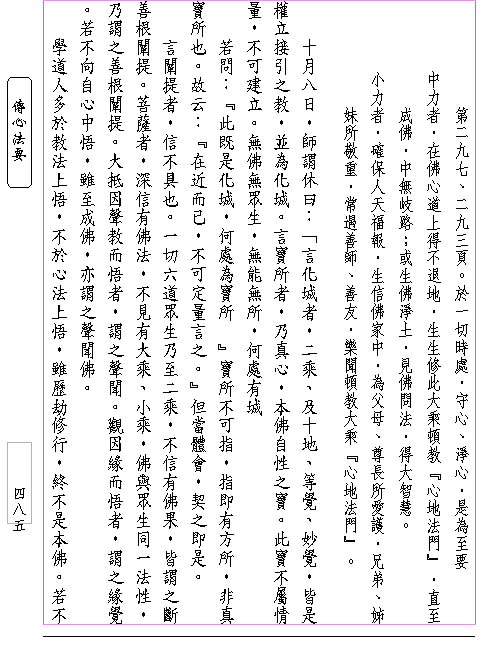 第二九七、二九三頁。於一切時處，守心、淨心，是為至要
中力者，在佛心道上得不退地，生生修此大乘頓教『心地法門』，直至
成佛，中無岐路；或生佛淨土，見佛問法，得大智慧。
小力者，確保人天福報，生信佛家中，為父母、尊長所愛護，兄弟、姊
妹所敬重，常遇善師、善友，樂聞頓教大乘『心地法門』。
十月八日，師謂休曰：「言化城者，二乘、及十地、等覺、妙覺，皆是
權立接引之教，並為化城。言寶所者，乃真心，本佛自性之寶。此寶不屬情
量，不可建立。無佛無眾生，無能無所，何處有城
若問：『此既是化城，何處為寶所 』寶所不可指，指即有方所，非真
寶所也。故云：『在近而已，不可定量言之。』但當體會，契之即是。
言闡提者，信不具也。一切六道眾生乃至二乘，不信有佛果，皆謂之斷
善根闡提。菩薩者，深信有佛法，不見有大乘、小乘，佛與眾生同一法性，
乃謂之善根闡提。大抵因聲教而悟者，謂之聲聞。觀因緣而悟者，謂之緣覺
。若不向自心中悟，雖至成佛，亦謂之聲聞佛。
學道人多於教法上悟，不於心法上悟，雖歷劫修行，終不是本佛。若不
傳心法要
四八五